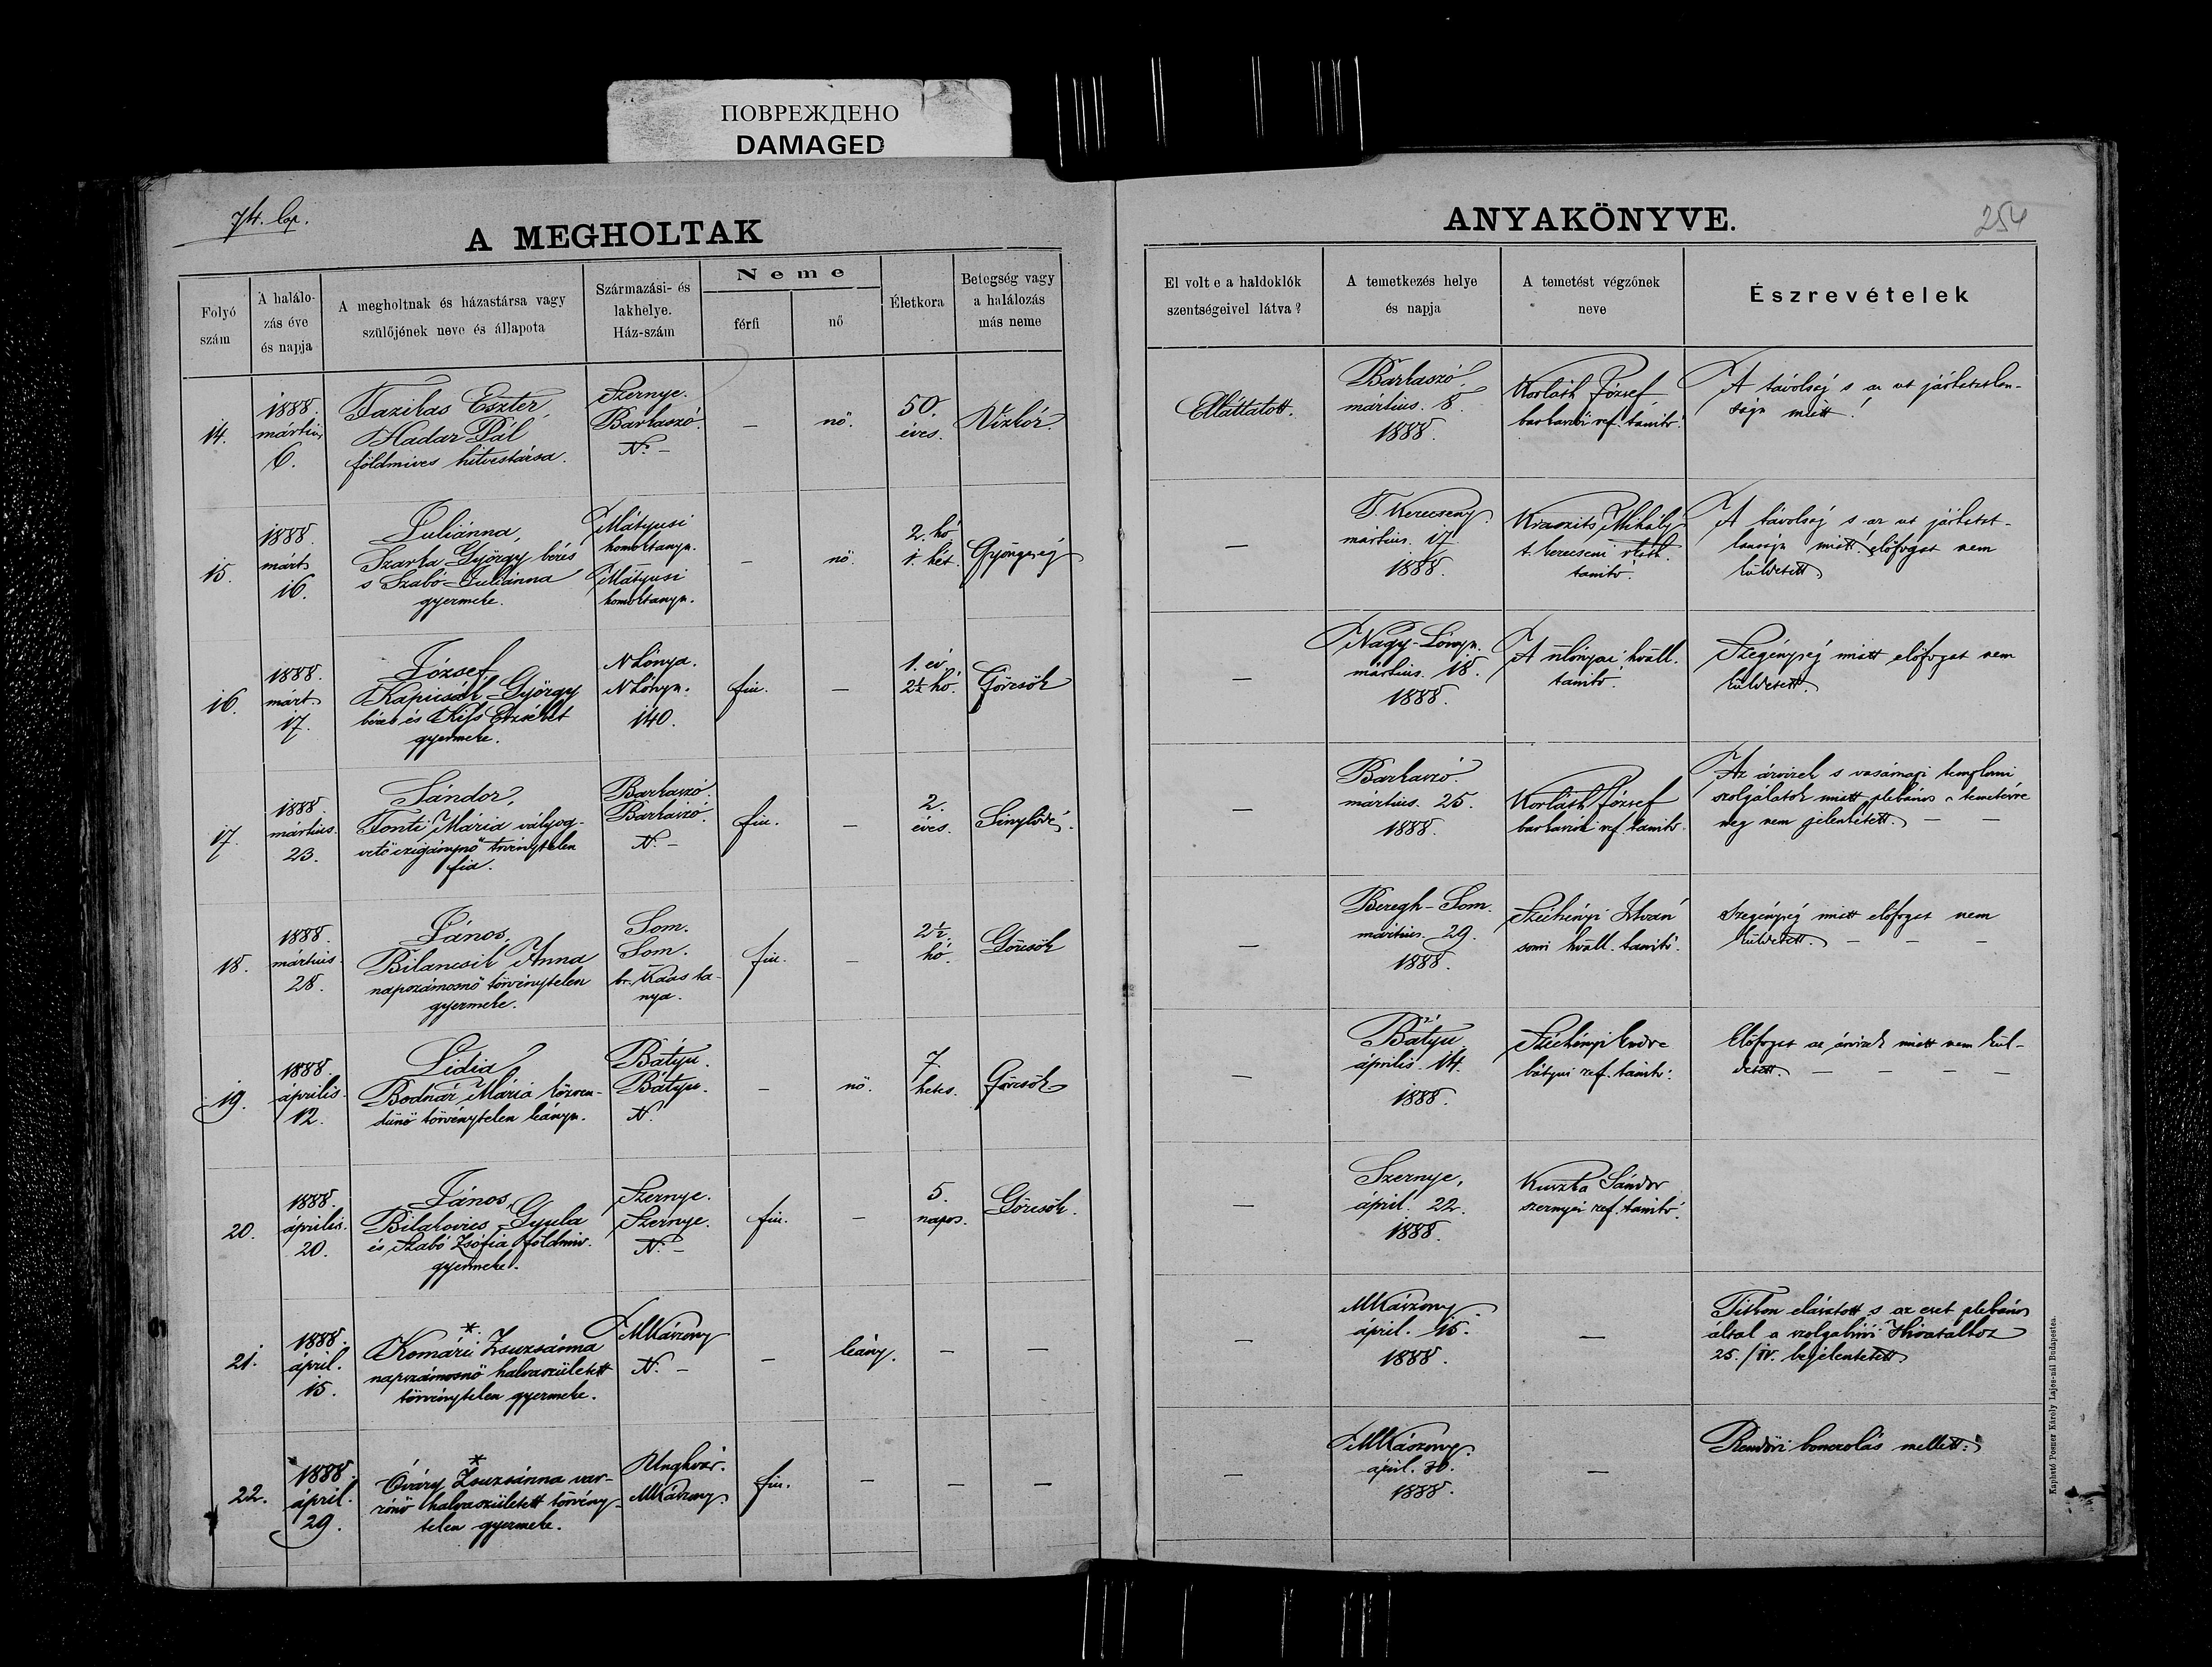 ПОВРЕЖДЕНО
DAMAGED
74. lap.
A MEGHOLTAK
ANYAKÖNYVE.
254
Folyó szám
A halálo-
zás éve
és napja
A megholtnak és házastársa vagy
szülőjének neve és állapota
Származási- és
lakhelye.
Ház-szám
Neme
férfi
nő
Életkora
Betegség vagy
a halálozás
más neme
El volt e a haldoklók
szentségeivel látva?
A temetkezés helye
és napja
A temetést végzőnek
neve
Észrevételek
14.
1888.
március
6.
Tazikas Eszter,
Hadar Pál
földmives hitvestársa.
Szernye.
Barkaszó.
N. –
–
nő.
50.
éves.
Vizkór.
Elláttatott.
Barkaszó.
március. 8.
1888.
Korláth József
barkaszói ref. tanitó.
A távolság s az ut járhatatlan-
sága miatt!
15.
1888.
márt.
16.
Juliánna,
Szarka György béres
s Szabó Juliánna
gyermeke.
Mátyusi
homoktanya.
Mátyusi
homoktanya.
–
nő.
2. hó
1. hét.
Gyöngeség
–
T. Kerecseny.
március. 17.
1888.
Kraszits Mihály
t. kerecseni
tanitó.
A távolság s az ut járhatat-
lansága miatt! előfogat nem
küldetett.
16.
1888.
márt.
17.
József,
Kapicsák György
béres és Kiss Erzsébet
gyermeke.
NLónya.
NLónya.
140.
fiu.
–
1. év
2½ hó.
Görcsök
–
Nagy-Lónya.
március. 18.
1888.
A nlónyai hváll.
tanitó.
Szegénység miatt előfogat nem
küldetett.
17.
1888.
március.
23.
Sándor,
Fonti Mária vályog-
vető czigánynő törvénytelen
fia.
Barkaszó.
Barkaszó.
N. –
fiu.
–
2.
éves.
Sinylődé.
–
Barkaszó.
március. 25.
1888.
Korláth József
barkaszói ref. tanitó.
Az árvizek s vasárnapi templomi
szolgálatok miatt plebános a temetésre
meg nem jelenhetett. – –
18.
1888.
március.
28.
János,
Bilancsik Anna
napszámosnő törvénytelen
gyermeke.
Som.
Som.
br. Kaas ta-
nya.
fiu.
–
2½
hó.
Görcsök
–
Beregh-Som.
március. 29.
1888.
Széchényi István
somi hváll. tanitó.
Szegénység miatt előfogat nem
küldetett. – – –
19.
1888.
április.
12.
Lidia,
Bodnár Mária közren-
dünő törvénytelen leánya.
Bátyu.
Bátyu.
N.
–
nő.
7.
hetes.
Görcsök
–
Bátyu
április. 14.
1888.
Széchényi Endre
bátyui ref. tanitó.
Előfogat az árvizek miatt nem kül-
detett. – – – –
20.
1888.
április.
20.
János,
Bilakovics Gyula
és Szabó Zsófia földmiv.
gyermeke.
Szernye.
Szernye.
N. –
fiu.
–
5.
napos.
Görcsök.
–
Szernye,
ápril. 22.
1888.
Kuszka Sándor
szernyei ref. tanitó.
21.
1888.
ápril.
15.
*
Komári Zsuzsánna
napszámosnő halvaszületett
törvénytelen gyermeke.
MKászony
N. –
–
leány.
–
–
–
MKászony
ápril. 15.
1888.
–
Titkon elásatott s az eset plebános
által a szolgabirói Hivatalhoz
25./IV. bejelentetett
22.
1888.
ápril.
29.
*
Óváry Zsuzsánna var-
rónő halvaszületett törvény-
telen gyermeke.
Unghvár.
MKászony.
fiu.
–
–
–
–
MKászony.
ápril. 30.
1888.
–
Rendőri bonczolás mellett.
Kapható Posner Károly Lajos-nál Budapesten.